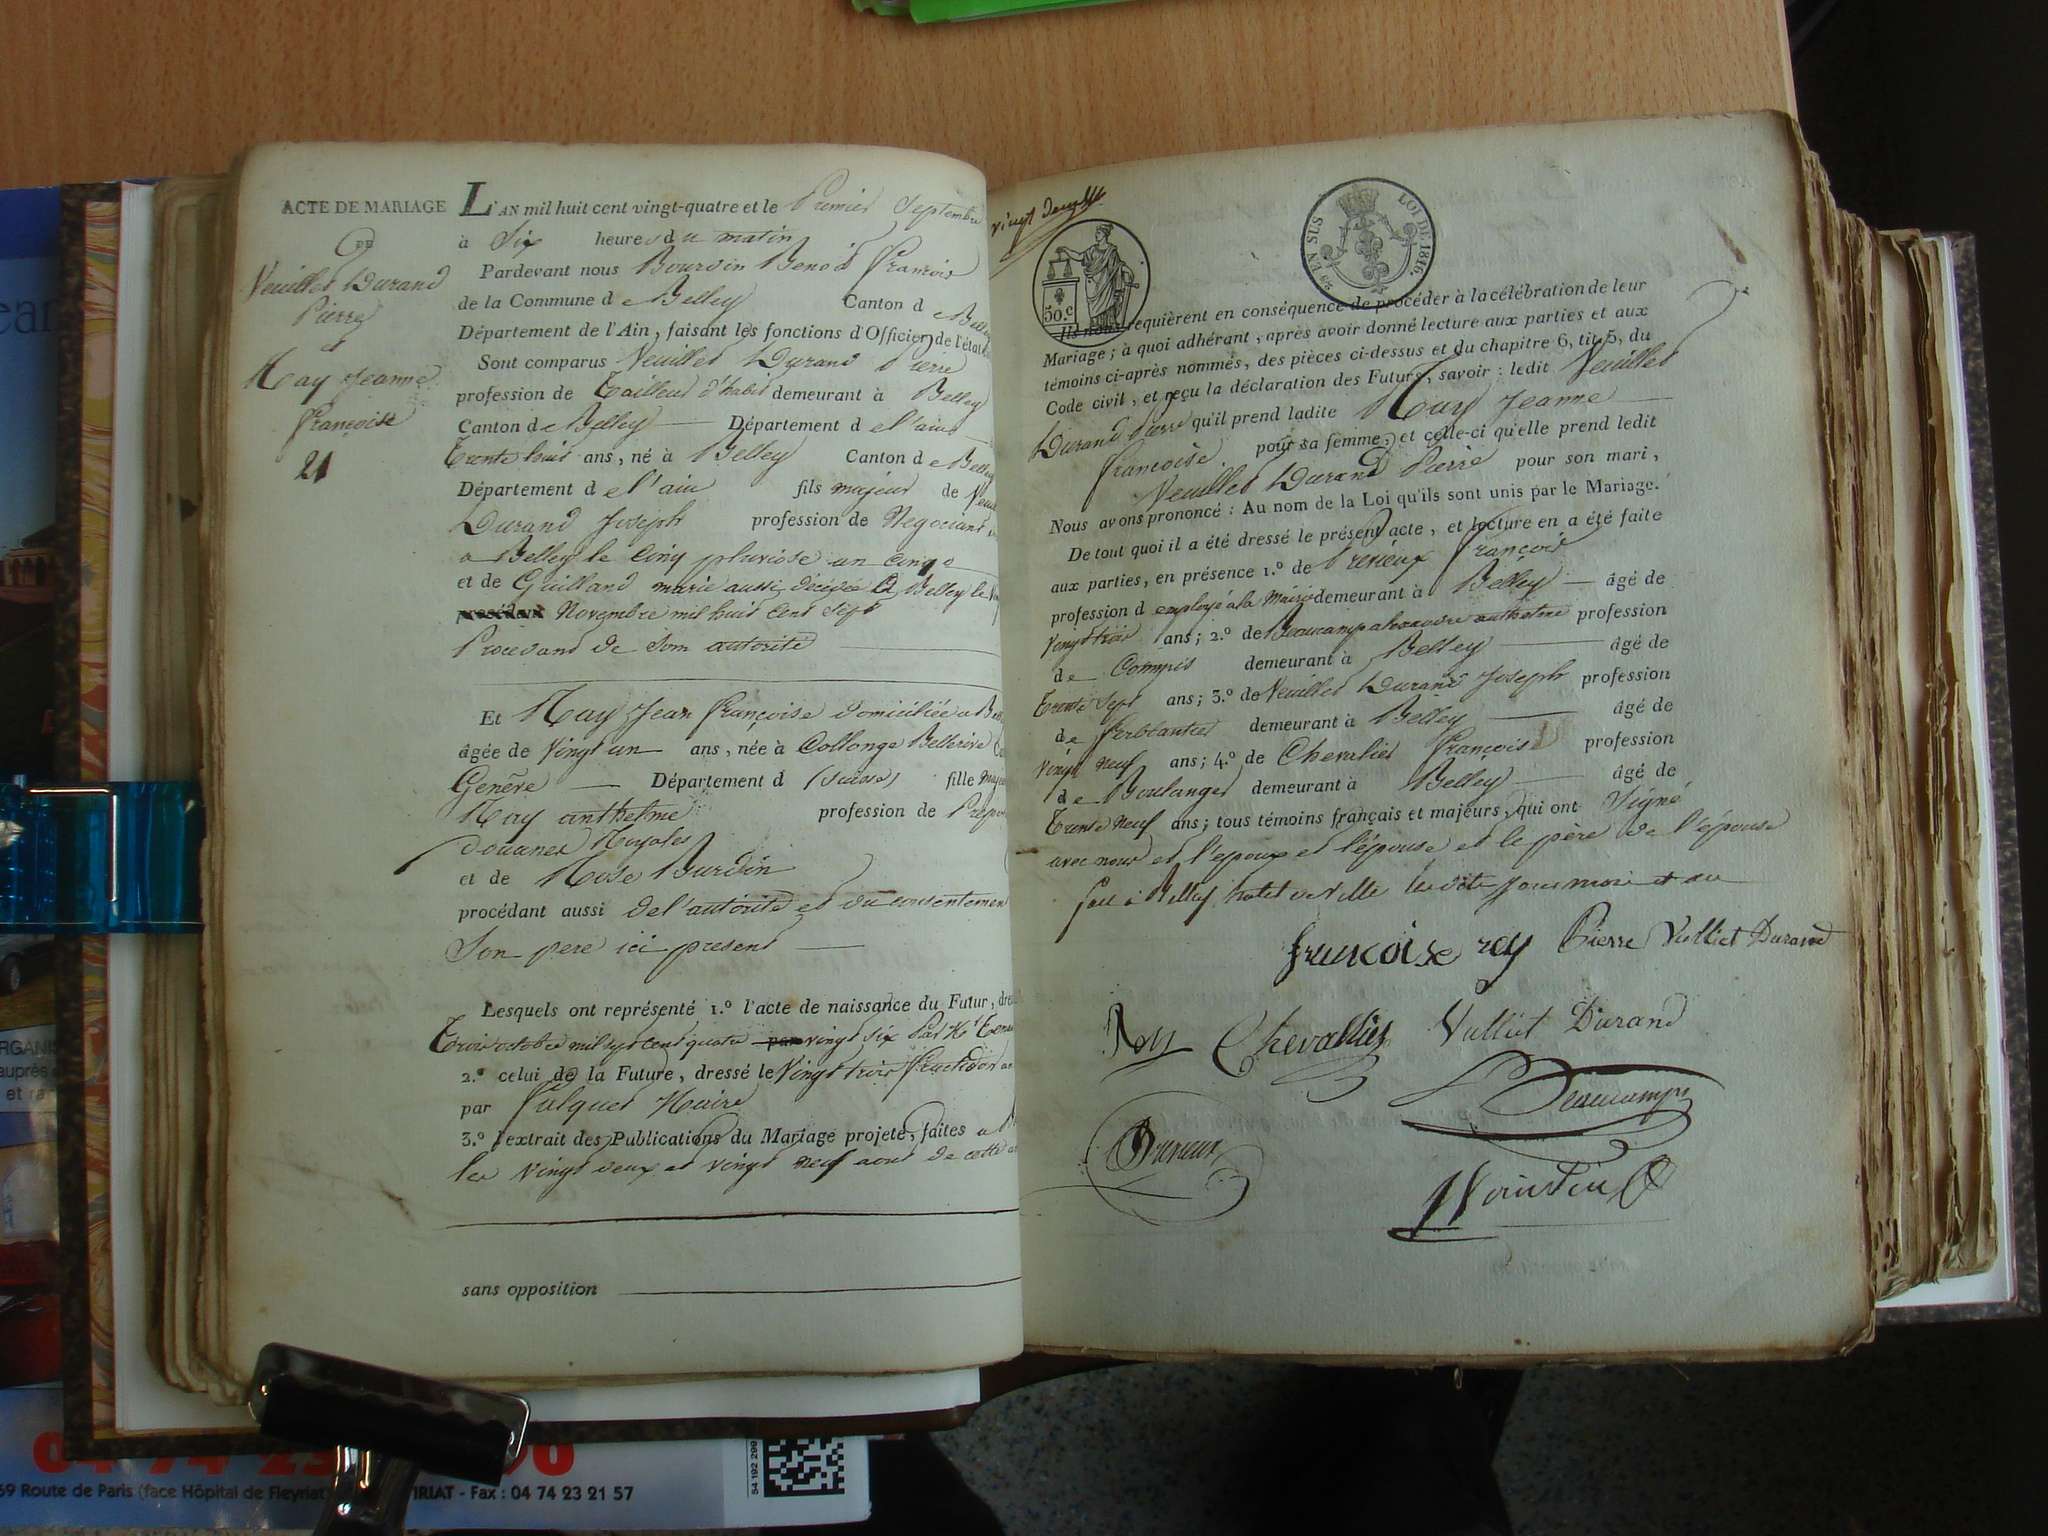 ACTE DE MARIAGE
De
Veuillet Durand
Pierre
et
Ray Jeanne
françoise
21
L'AN mil huit cent vingt-quatre et le Premier Septembre
à Six heures du matin
Pardevant nous Benoit françois
de la Commune de Belley Canton de Belley
Département de l'Ain, faisant les fonctions d'Officier de l'état
Sont comparus Veuillet Durand Pierre
profession de Tailleur d'habit demeurant à Belley
Canton de Belley Département de l'ain
Trente huit ans, né à Belley Canton de Belley
Département de l'ain fils majeur de
Durand Joseph profession de Negociant
a Belley le Cinq pluviose an Cinq
et de Guilland marie aussi décédée à Belley le
Novembre mil huit Cent Sept
Procedant de Son autorité
Et Ray Jean françoise domiciliée a
âgée de Vingt un ans, née à Collonge Bellerive
Genève Département d (Suisse) fille
Ray anthelme profession de
douanes Royales
et de Rose Burdin
procédant aussi de l'autorité et du consentement
Son pere ici present
Lesquels ont représenté 1.º l'acte de naissance du Futur,
Trois octobre mil sept Cent quatre vingt Six Par
2.º celui de la Future, dressé le Vingt trois fructidor an
par Maire
3.º l'extrait des Publications du Mariage projeté, faites a
les vingt deux et vingt neuf aout de cette
sans opposition
vingt
EN SUS LOI DE 1816.
50.c
Ils nous requièrent en conséquence de procéder à la célébration de leur
Mariage; à quoi adhérant, après avoir donné lecture aux parties et aux
témoins ci-après nommés, des pièces ci-dessus et du chapitre 6, tit. 5, du
Code civil, et reçu la déclaration des Futurs, savoir: ledit Veuillet
Durand Pierre qu'il prend ladite Ray Jeanne
françoise pour sa femme, et celle-ci qu'elle prend ledit
Veuillet Durand Pierre pour son mari,
Nous avons prononcé: Au nom de la Loi qu'ils sont unis par le Mariage.
De tout quoi il a été dressé le présent acte, et lecture en a été faite
aux parties, en présence 1.º de françois
profession d employé à la Mairie demeurant à Belley âgé de
Vingt trois ans; 2.º de Beaucamp alexandre anthelme profession
de Commis demeurant à Belley âgé de
Trente Sept ans; 3.º de Veuillet Durand Joseph profession
de ferblantier demeurant à Belley âgé de
Vingt neuf ans; 4.º de Chevalier françois profession
de Boulanger demeurant à Belley âgé de
Trente neuf ans; tous témoins français et majeurs, qui ont Signé
avec nous et l'epoux et l'épouse et le père de l'épouse
fait à Belley hotel de Ville les dits jour mois et an
francoise rey Pierre Vulliet Durand
Rey Chevallier Vulliet Durand
Beaucamp
04 74 23
69 Route de Paris (face Hôpital de Fleyriat
IRIAT - Fax : 04 74 23 21 57
54 192 299
ORGANIS
auprès
et ra